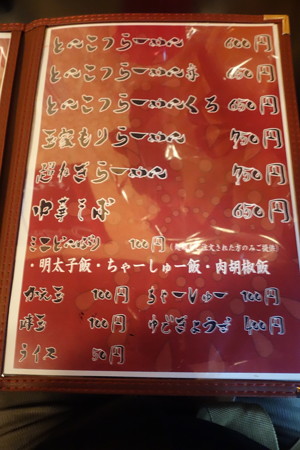 とんこつらーめん 600円
とんこつらーめん赤 650円
とんこつらーめんくろ 650円
野菜もりらーめん 750円
ねぎらーめん 750円
中華そば 650円
ミニどんぶり 100円
・明太子飯・ちゃーしゅー飯・肉胡椒飯
かえ玉 100円 ちゃーしゅー 100円
味玉 100円 ゆでぎょうざ 400円
ライス 50円